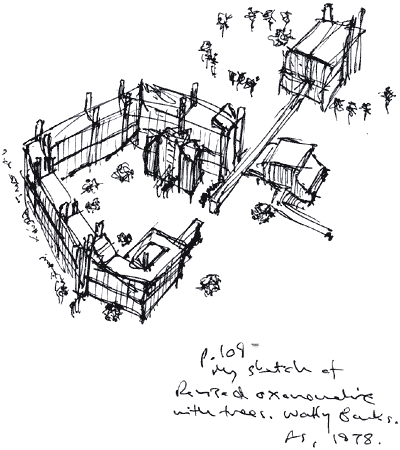 p.109
My sketch of
Revised axonometric
with trees. Wally Banks.
As, 1978.